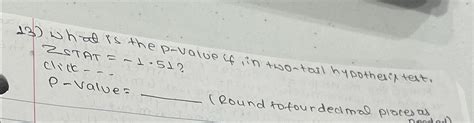 13) what is the p-value if, in two-tail hypothesis test,
ZSTAT = -1.51?
click ---
P-value = ______ (Round to four decimal places as
needed)